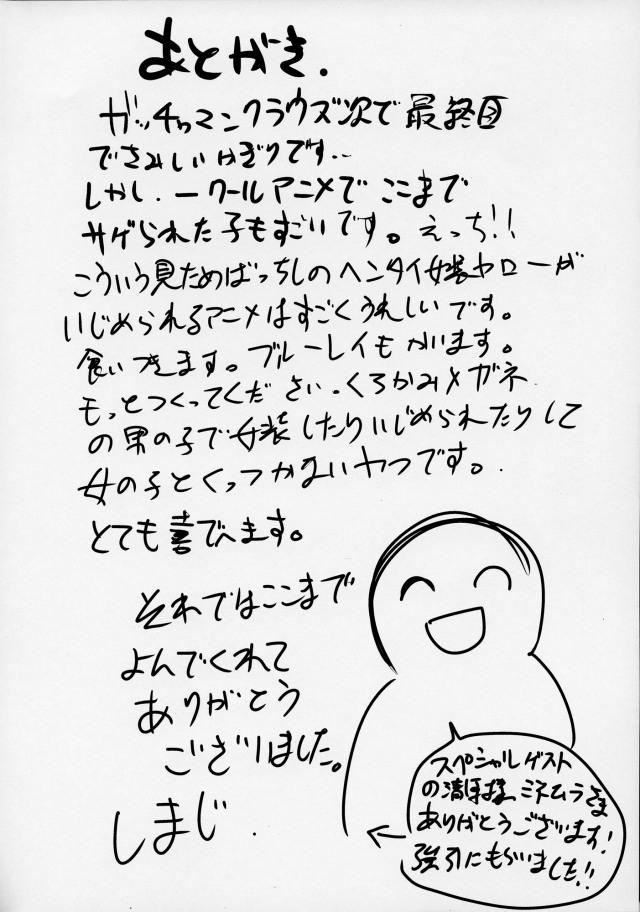 あとがき.
ガッチャマンクラウズ次で最終回
でさみしいかぎりです..
しかし.一クールアニメでここまで
サゲられた子もすごいです。えっち!!
こういう見ためばっちしのヘンタイ女装ヤローが
いじめられるアニメはすごくうれしいです。
食いつきます。ブルーレイもかいます。
もっとつくってください.くろかみメガネ
の男の子で女装したりいじめられたりして
女の子とくっつかないヤつです。
とても喜びます。
それではここまで
よんでくれて
ありがとう
ございました。
しまじ.
スペシャルゲスト
の様、ミネムラさま
ありがとうございます!
強引にもらいました!!